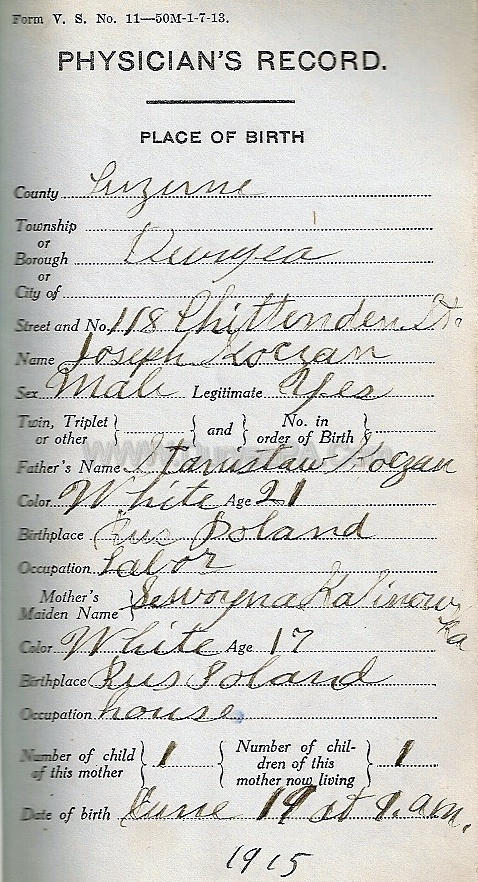 Form V. S. No. 11—50M-1-7-13.
PHYSICIAN'S RECORD.
PLACE OF BIRTH
County Luzerne
Township
or
Borough Duryea
or
City of
Street and No. 118 Chittenden St.
Name Joseph Koczan
Sex Male Legitimate Yes
Twin, Triplet or other } { and } No. in order of Birth }
Father's Name Stanislaw Koczan
Color White Age 21
Birthplace Rus Poland
Occupation Labor
Mother's Maiden Name } Kalinowska
Color White Age 17
Birthplace Rus Poland
Occupation house
Number of child of this mother } 1 { Number of children of this mother now living } 1
Date of birth June 19 at 9. a.m.
1915